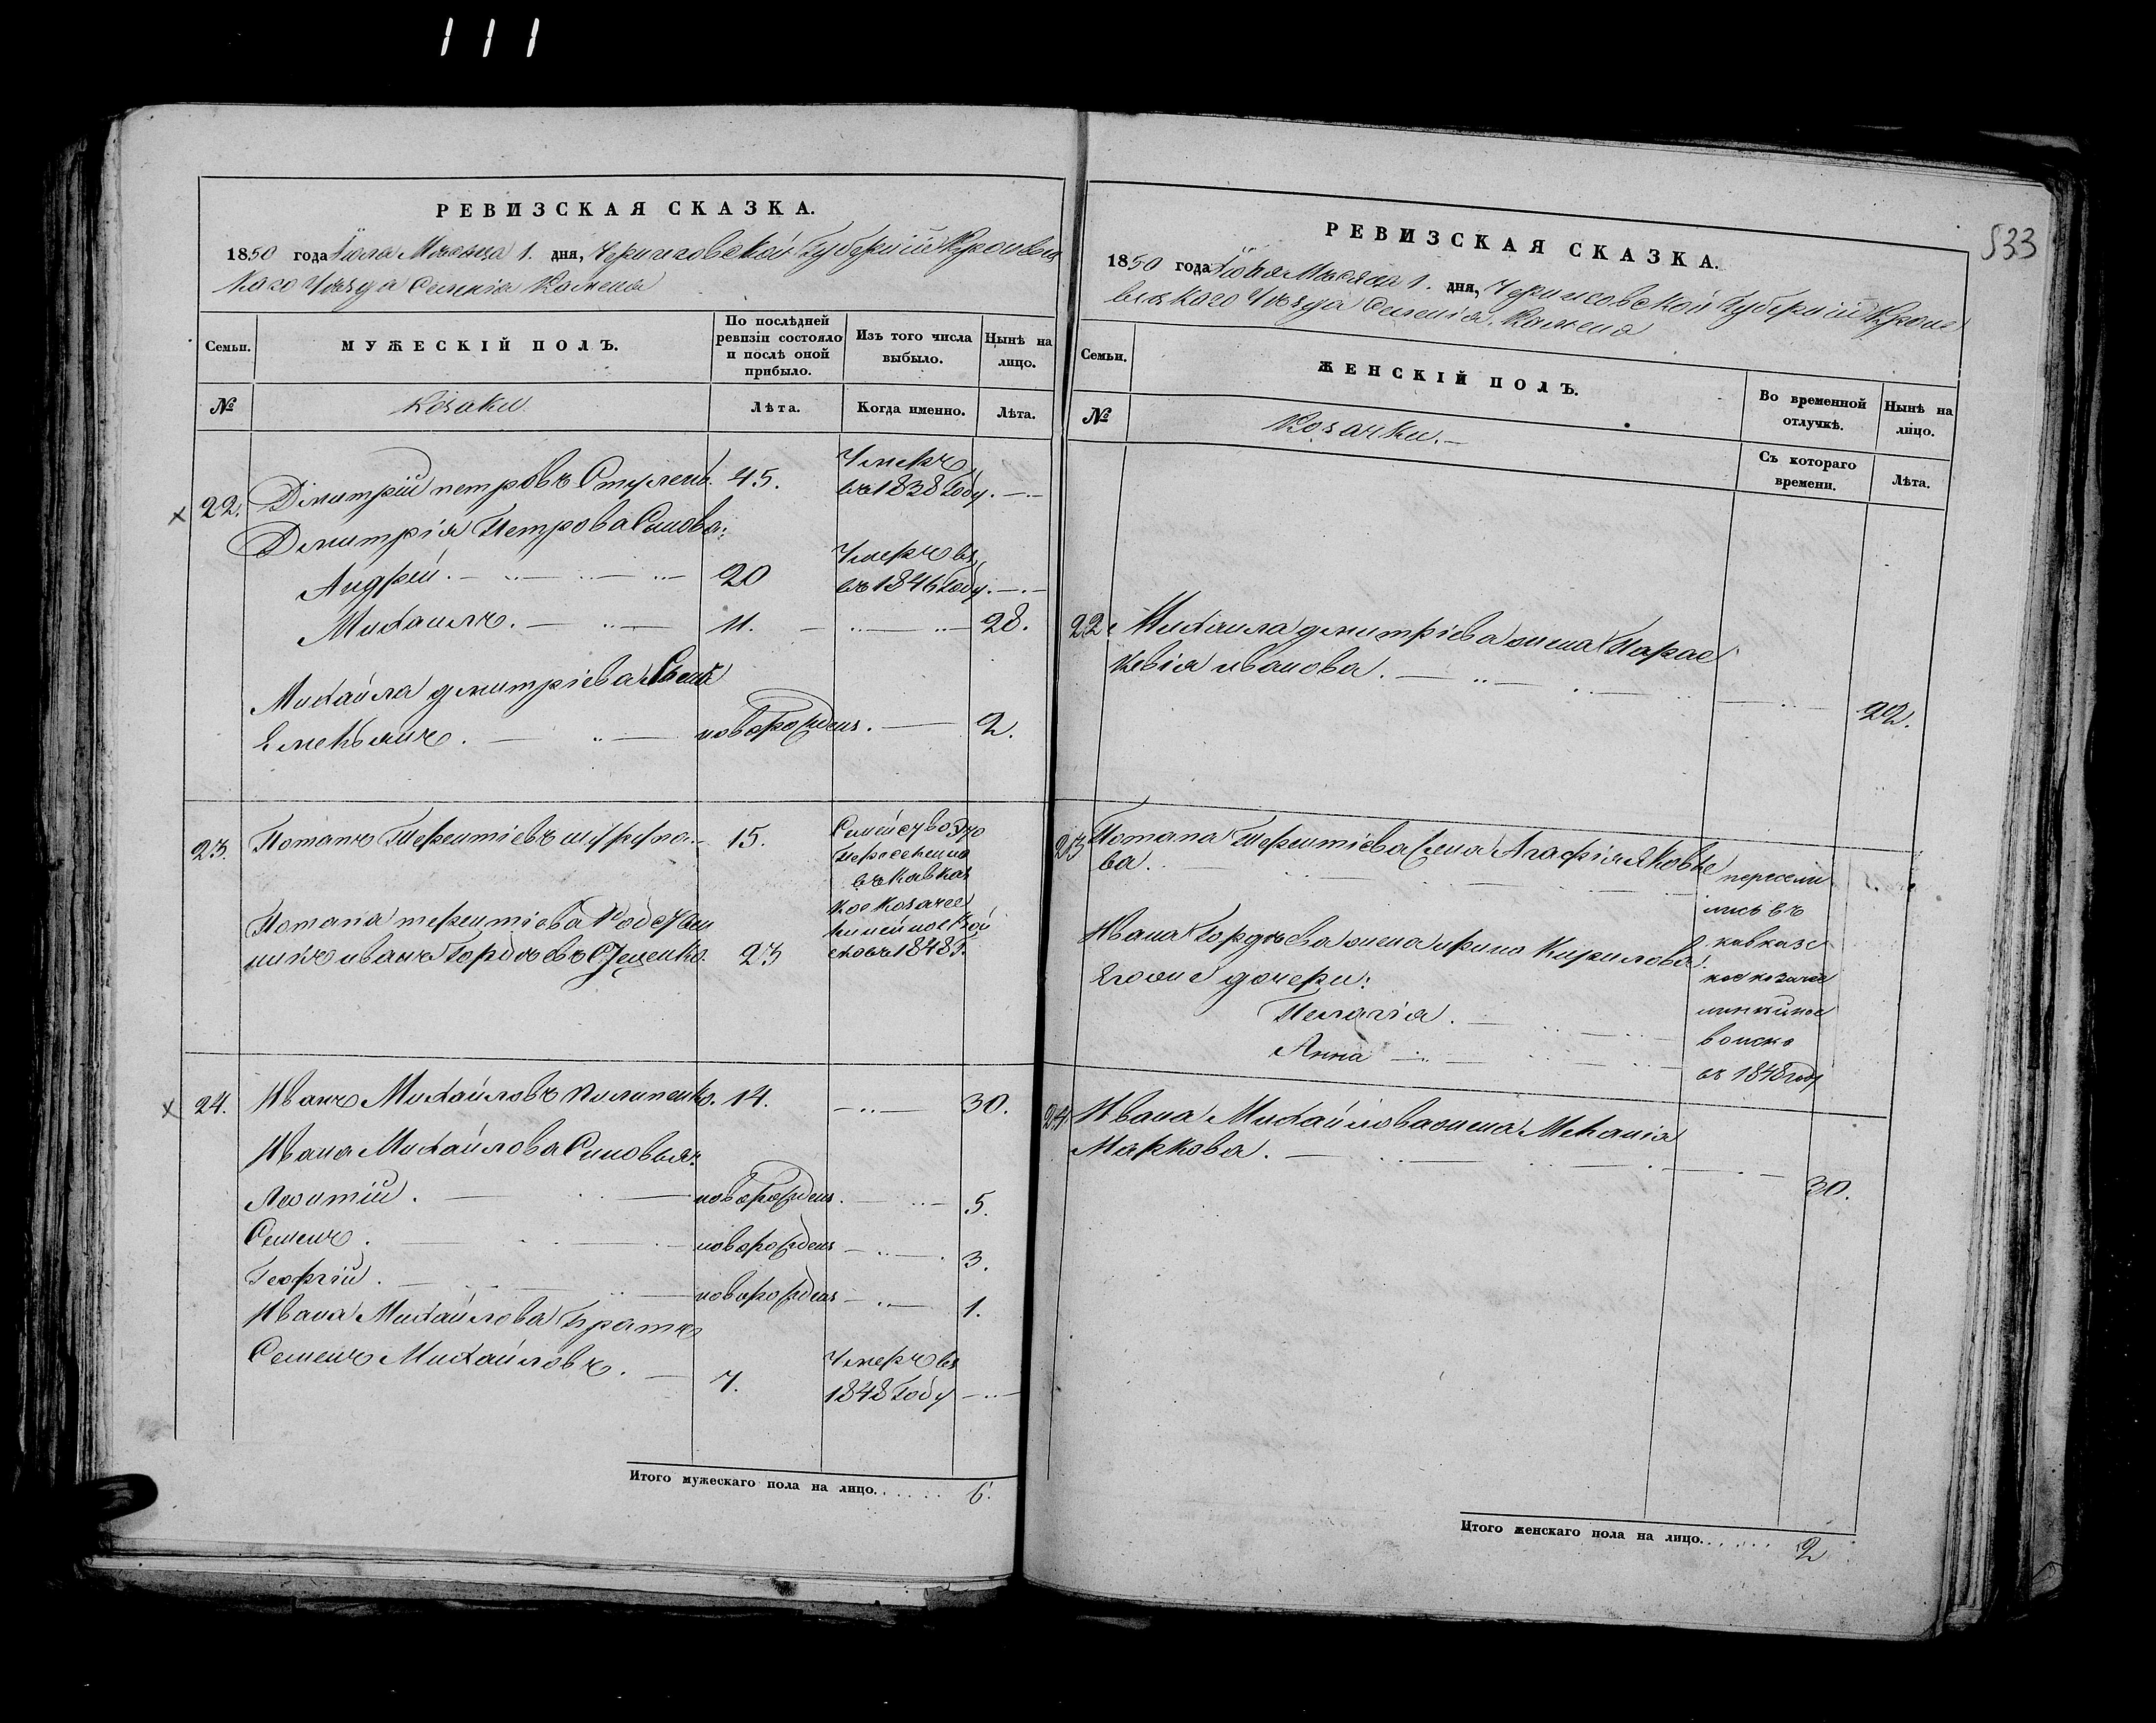 111
РЕВИЗСКАЯ СКАЗКА.
1850 года Июля Месяца 1. дня, Черниговской Губерніи Кролевец
каго Уезда Селенія Камена
Семьи.
МУЖЕСКІЙ ПОЛЪ.
По послѣдней ревизіи состояло и послѣ оной прибыло.
Изъ того числа выбыло.
Нынѣ на лицо.
№
Козаки
Лѣта.
Когда именно.
Лѣта.
22. Дмитрій петровъ Ступень. 45. Умеръ
въ 1838 году.
Дмитрія Петрова Синова:
Андрей. 20 Умеръ въ
въ 1846 году.
Михаилъ. 11. 28.
Михаила дмитріева Сынъ
новорожден. 2.
23. Потапъ Терентіевъ 15. Семейство это
Переселено
въ Кавказ
кое Козачее
Линейное Вой
ско въ 1848 г.
Потапа терентіева Родствен
никъ иванъ Гордѣевъ 23
24. Иванъ Михайловъ Пилипенко. 14. 30.
Ивана Михайлова Синовья:
новорожден. 5.
Семенъ. новорожден 3.
Георгій. новорожден 1.
Ивана Михайлова Братъ
Семенъ Михайловъ. 7. Умеръ въ
1848 году
Итого мужескаго пола на лицо...... 6.
533
РЕВИЗСКАЯ СКАЗКА.
1850 года Июля Месяца 1. дня, Черниговской Губерніи Кроле
вецкого Уезда Селенія Камена
Семьи.
ЖЕНСКІЙ ПОЛЪ.
Во временной отлучкѣ.
Нынѣ на лицо.
№
Козачки.
Съ котораго времени.
Лѣта.
22. Михаила дмитріева жена Парас
кевія иванова. 22.
23 Потапа Терентіева жена Агафія Яковле
ва.
пересели
лись въ
кавказс
кое козачее
линейное
войско
въ 1848 году
Ивана Гордѣева жена ирина Кирилова
Егоже дочери:
Пелагія.
Анна
24. Ивана Михайлова жена Меланія
Маркова. 30.
Итого женскаго пола на лицо...... 2